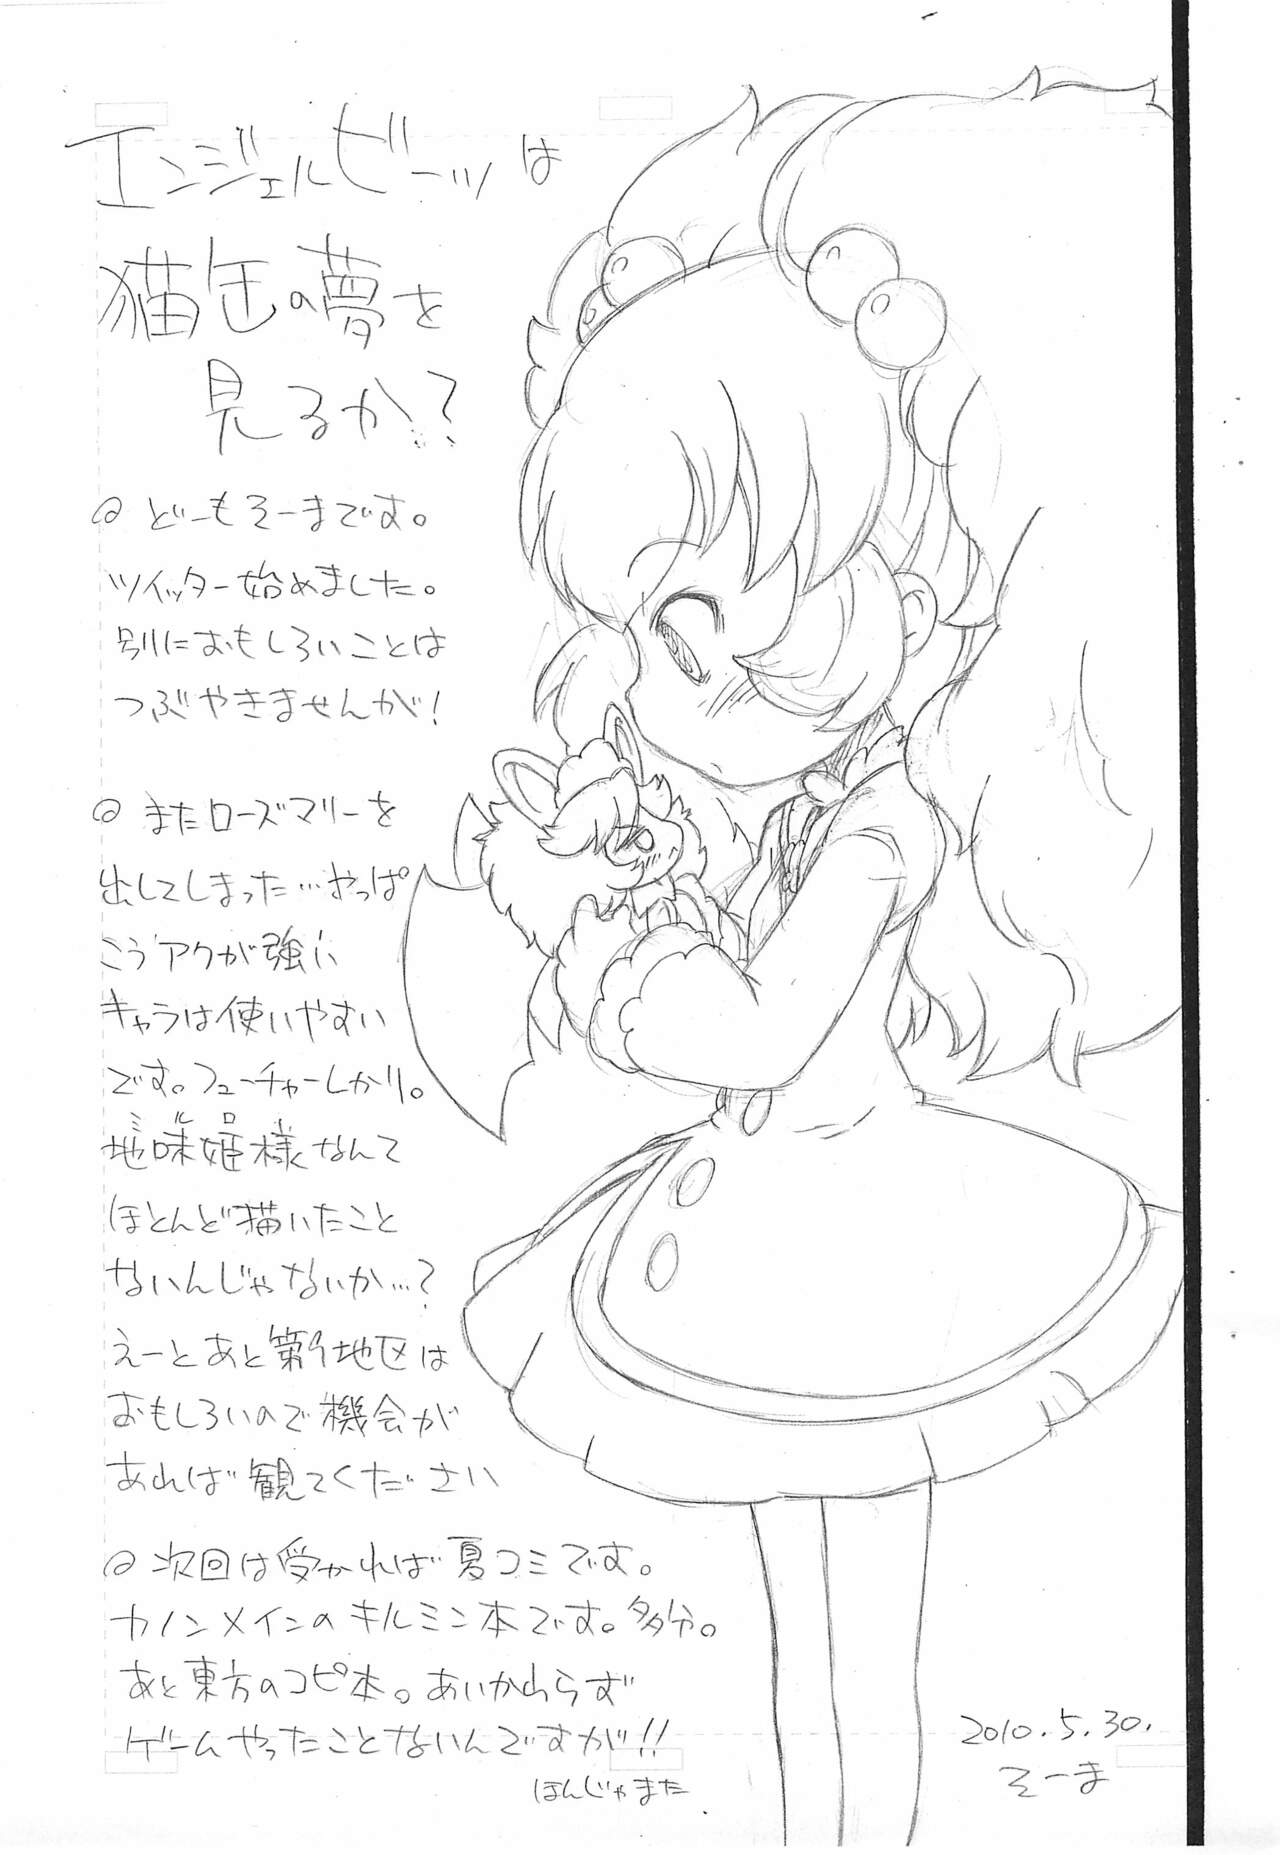 エンジェルビーツは
猫缶の夢を
見るか?
◎どーもそーまです。
ツイッター始めました。
別におもしろいことは
つぶやきませんが!
◎またローズマリーを
出してしまった…やっぱ
こうアクが強い
キャラは使いやすい
です。フューチャーしかり。
ミルロ
地味姫様なんて
ほとんど描いたこと
ないんじゃないか…?
えーとあと第9地区は
おもしろいので機会が
あれば観てください
◎次回は受かれば夏コミです。
カノンメインのキルミン本です。多分。
あと東方のコピ本。あいかわらず
ゲームやったことないんですが!!
ほんじゃまた
2010.5.30.
そーま